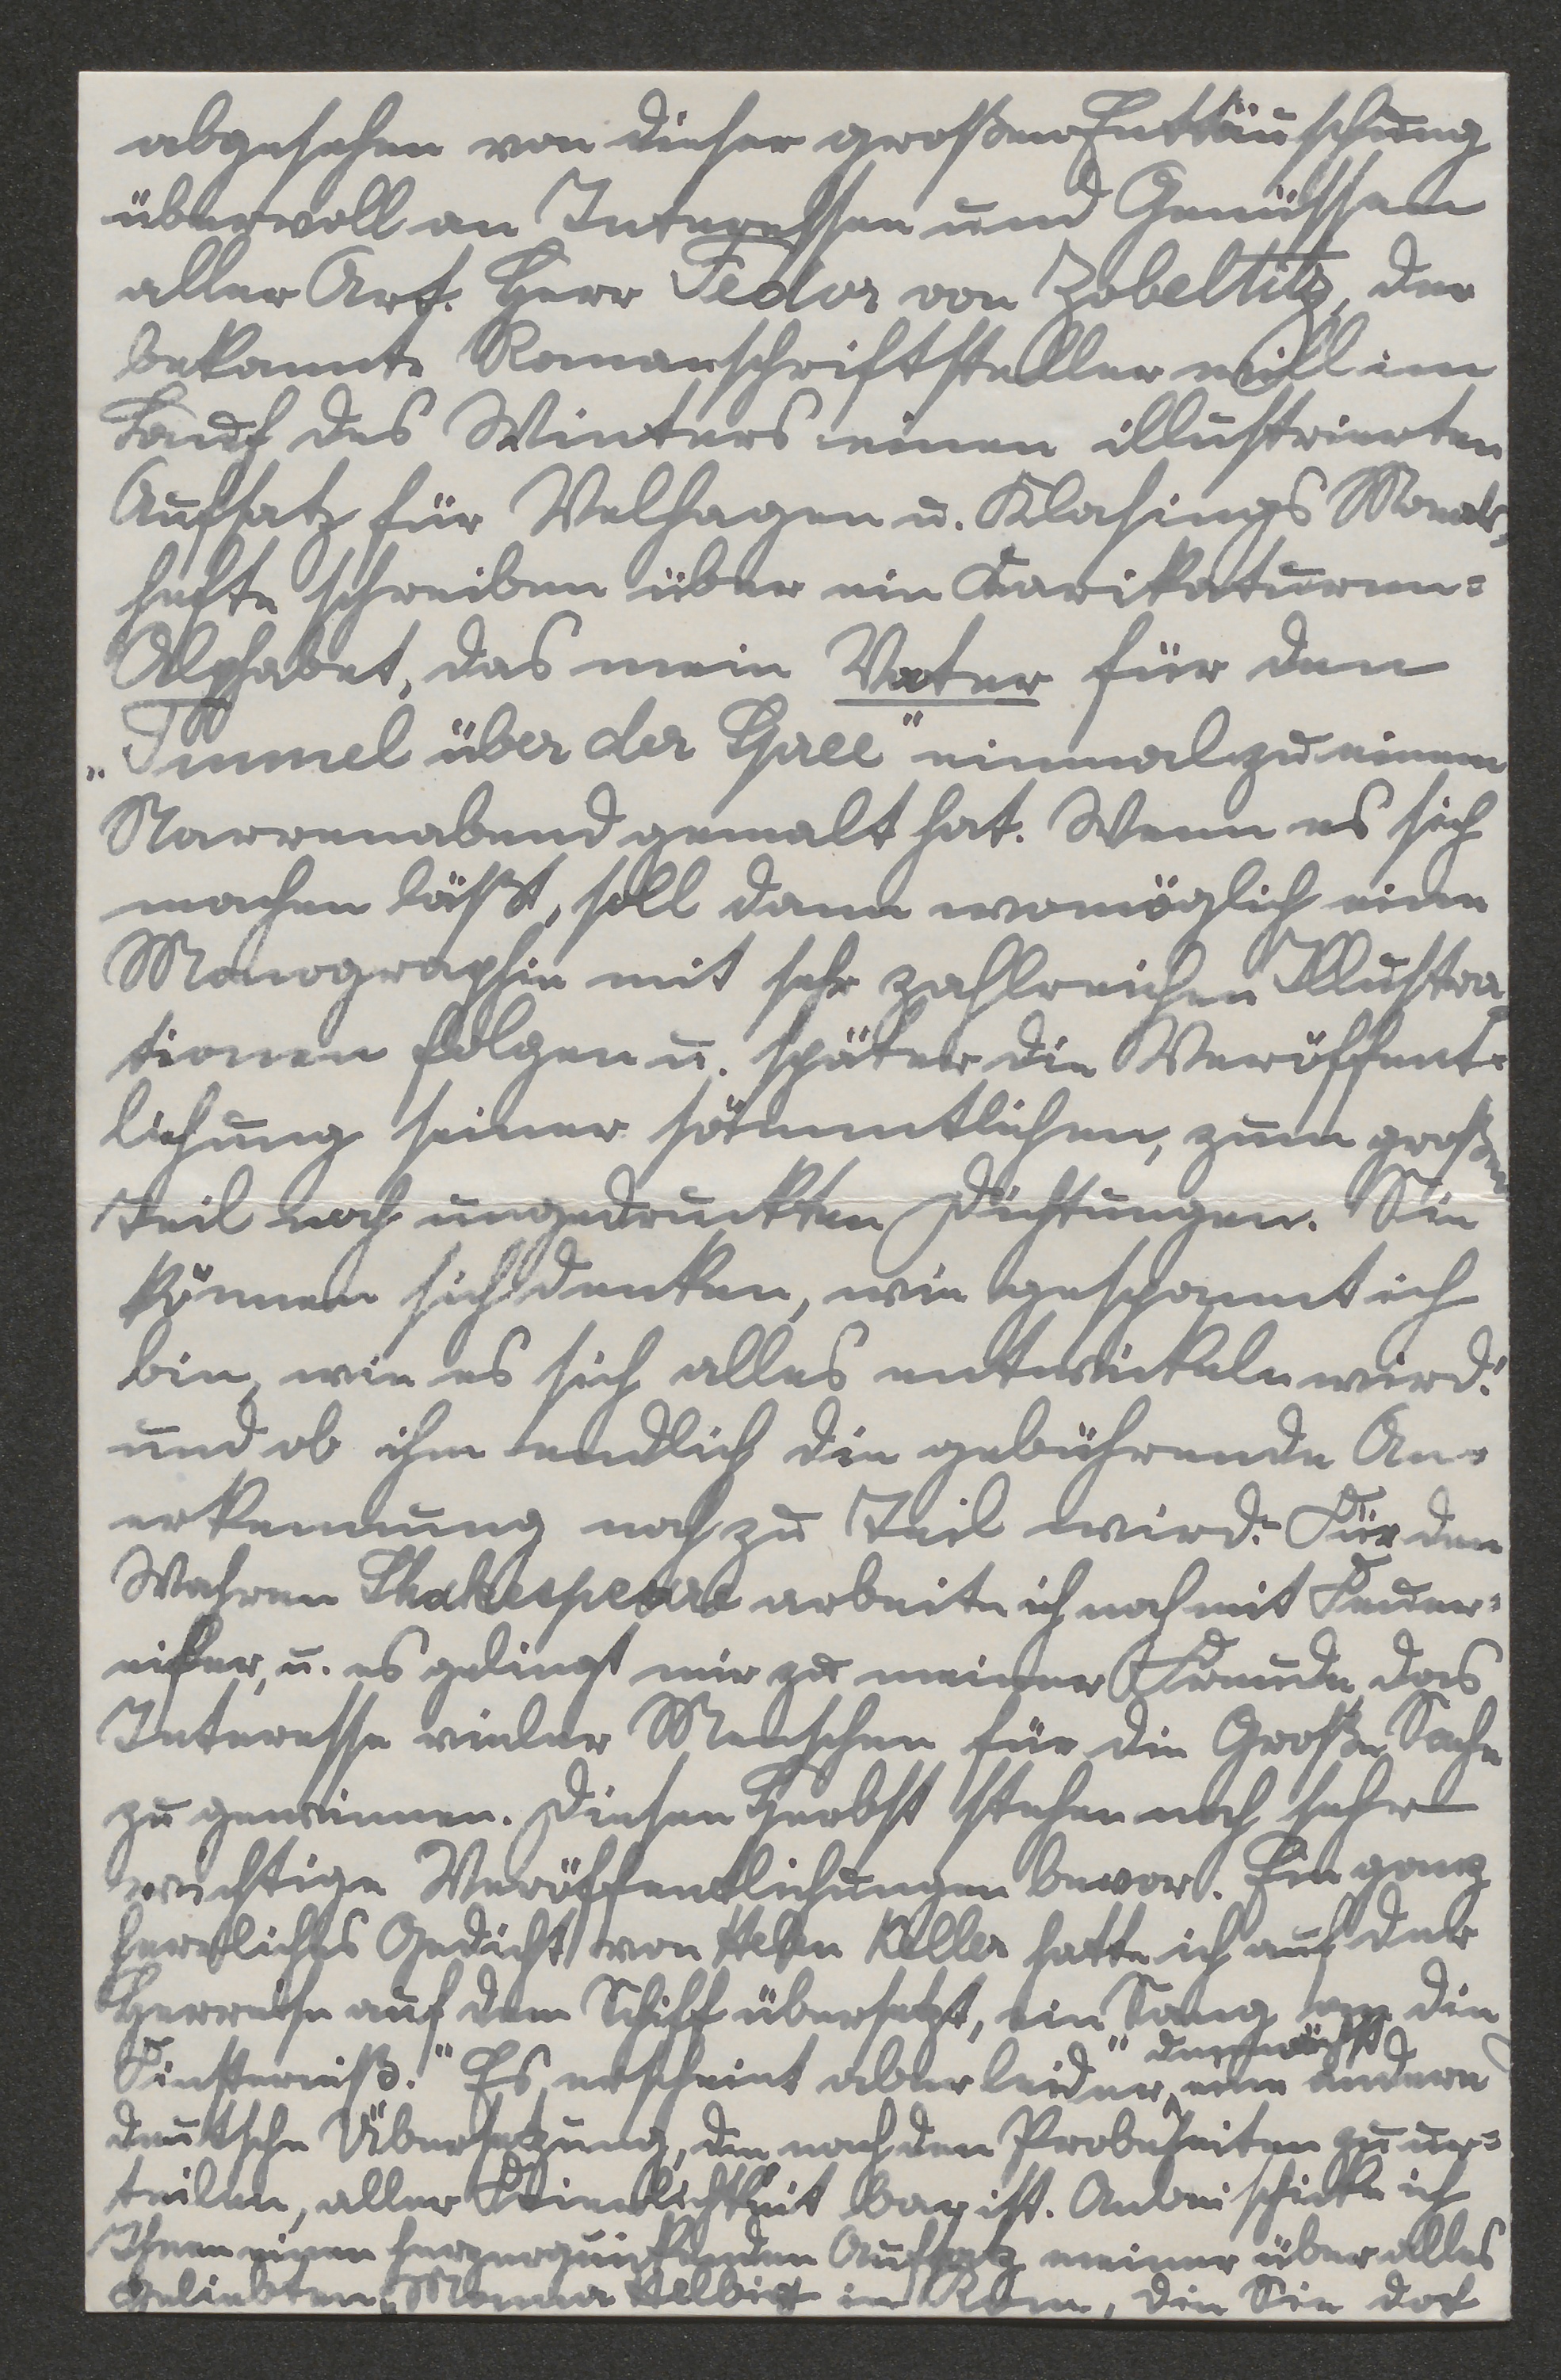 abgesehen von dieser großen Enttäuschung
übervoll an Interessen und Genüssen
aller Art. Herr Fedor von Zobeltitz, der
bekannte Romanschriftsteller will im
Lauf des Winters einen illustrierten
Aufsatz für Velhagen u. Klasings Monats-
hefte schreiben über ein Karikaturen-
Alphabet, das mein Vater für den
"Tunnel über der Spree" einmal zu einem
Narrenabend gemalt hat. Wenn es sich
machen läßt, soll dann womöglich eine
Monographie mit sehr zahlreichen Illustra-
tionen folgen u. später die Veröffent-
lichung seiner sämmtlichen, zum großen
Teil noch ungedruckten Dichtungen. Sie
können sich denken, wie gespannt ich
bin, wie es sich alles entwickeln wird!
und ob ihm endlich die gebührende An-
erkennung noch zu Teil wird. Für den
Wahren Shakespeare arbeite ich noch mit Feuer-
eifer, u. es gelingt mir zu meiner Freude, das
Interesse vieler Menschen für die Große Sache
zu gewinnen. Diesen Herbst stehen noch sehr
wichtige Veröffentlichungen bevor. Ein ganz
herrliches Gedicht von Helen Keller hatte ich auf der
Herreise auf dem Schiff übersetzt, ein "Sang an die
Finsterniß." Es erscheint aber leider demnächst eine andere
deutsche Übersetzung, die, nach den Probezeiten zu ur-
teilen, aller bar ist. Anbei schicke ich
Ihnen einen herzerquickenden Aufsatz meiner über alles
geliebten Helbig in Rom, die Sie dort